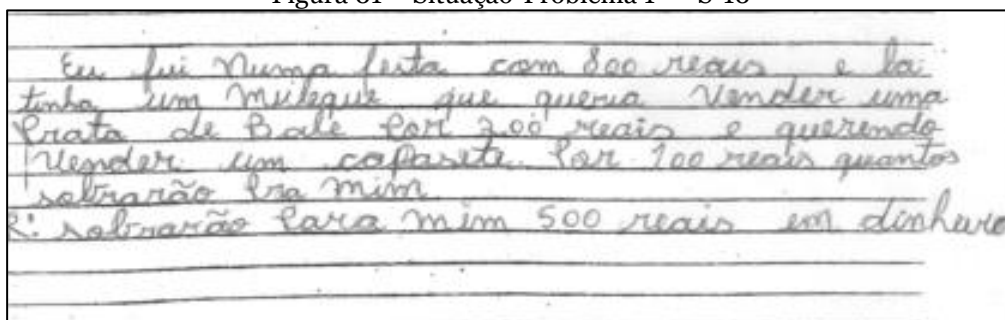 Figura 61 – Situação-Problema 1 – S 18
Eu fui numa festa com 800 reais e la
tinha um muleque que queria vender uma
Prata de Bale Por 200 reais e querendo
Vender um capasete Por 100 reais quantos
sobrarão Pra mim
R: sobrarão Para mim 500 reais em dinheiro